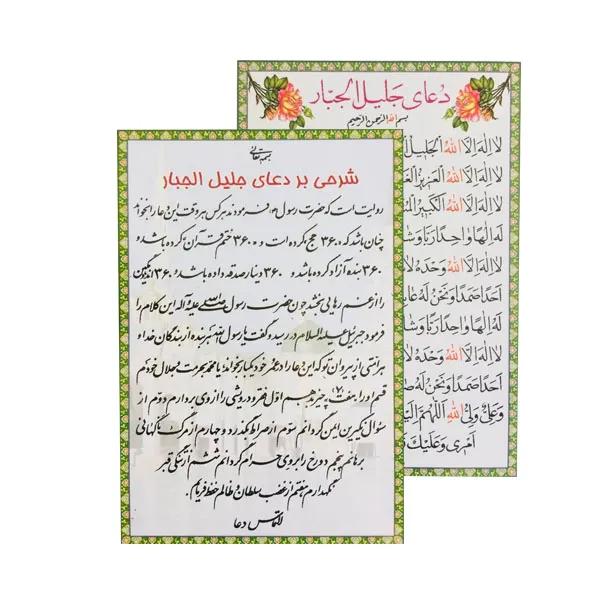 بسمه تعالی
شرحی بر دعای جلیل الجبار
روایت است که حضرت رسول (ص) فرمودند هر کس هر وقت این دعا را بخواند
چنان باشد که ۳۶۰ حج کرده است و ۳۶۰ ختم قرآن کرده باشد و
۳۶۰ بنده آزاد کرده باشد و ۳۶۰ دینار صدقه داده باشد و ۳۶۰ اندوهگین
را از غم رهایی بخشد چون حضرت رسول صلی الله علیه و آله این کلام را
فرمود جبرئیل علیه السلام در رسید و گفت یا رسول الله هر بنده از بندگان خدا و
هر امتی از پیروان تو که این دعا را در عمر خود یکبار بخواند یا محمد بحرمت و جلال خودم
قسم او را هفت (۷) چیز بدهم اول فقر و درویشی را از وی بردارم دوم از
سؤال نکیرین ایمن گردانم سوم از صراط بگذرد و چهارم از مرگ ناگهانی
برهانم پنجم دوزخ را بر وی حرام گردانم ششم از تنگی قبر
نگهدارم هفتم از غضب سلطان و ظالم حفظ فرمایم.
التماس دعا
دعای جلیل الجبار
بسم الله الرحمن الرحیم
لا اله الا الله الجلیل
لا اله الا الله العزیز
لا اله الا الله الکبیر
له الها واحدا ربا
لا اله الا الله وحده لا
احدا صمدا و نحن له
له الها واحدا ربا
لا اله الا الله وحده لا
احدا صمدا و نحن له
و علی ولی الله اللهم
امری و علیک